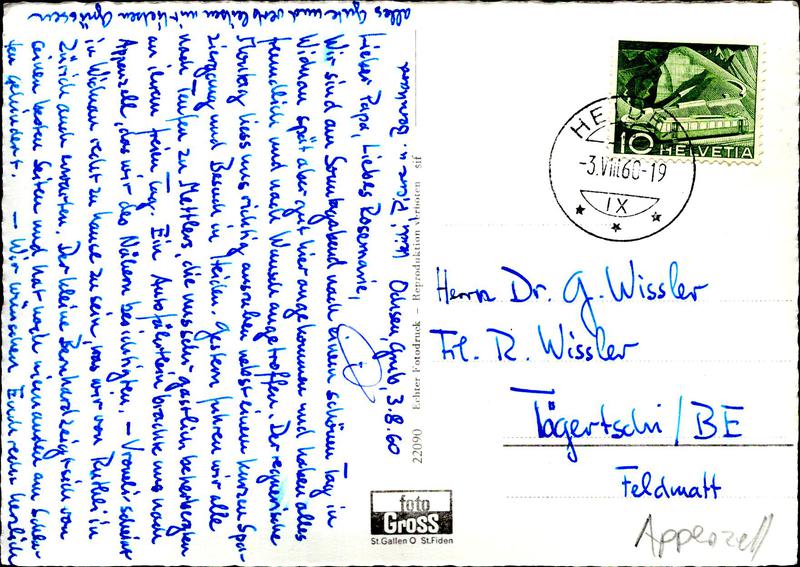 Ochsen, Grub, 3.8.60
Lieber Papa, Liebes Rosemarie,
Wir sind am Sonntagabend nach einem schönen Tag in
Widnau spät aber gut hier angekommen und haben alles
freundlich und nach Wunsch angetroffen. Der regnerische
Montag liess uns richtig ausruhen nebst einem kurzen Spa-
ziergang und Besuch in Heiden. Gestern fuhren wir alle
nach Teufen zu Mettlers, die uns sehr gastlich beherbergten
an ihrem freien Tag. Ein Autofährtlein brachte uns nach
Appenzell, das wir des Nähern besichtigten. – Vroneli scheint
in Widnau recht zu Hause zu sein, was wir von Ruthli in
Zürich auch erwarten. Der kleine Bernhard zeigt sich von
seinen besten Seiten und hat noch niemanden am Schla-
fen gehindert. – Wir wünschen Euch recht herzlich
alles Gute und verbleiben mit lieben Grüssen
u.
22090 Echter Fotodruck – Reproduktion verboten sif
foto
Gross
St.Gallen O St.Fiden
HEIDEN
-3.VIII.60-19
IX
10 HELVETIA
Herrn Dr. G. Wissler
Frl. R. Wissler
Tägertschi / BE
Feldmatt
Appenzell